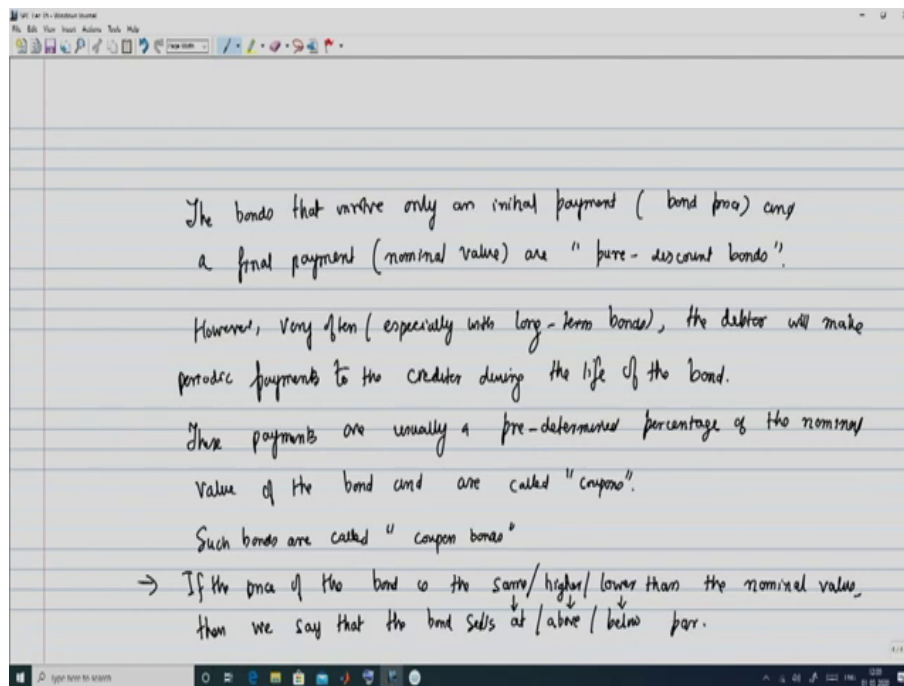 File Edit View Insert Actions Tools Help
Page Width
The bonds that involve only an initial payment ( bond price) and
a final payment (nominal value) are " pure - discount bonds".
However, very often ( especially with long - term bonds), the debtor will make
periodic payments to the creditor during the life of the bond.
These payments are usually a pre-determined percentage of the nominal
value of the bond and are called "coupons".
Such bonds are called " coupon bonds"
→ If the price of the bond is the same/ higher/ lower than the nominal value,
↓ ↓ ↓
then we say that the bond sells at / above / below par.
type here to search